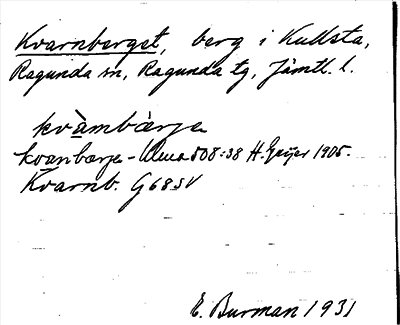 Kvarnberget, berg i Kullsta,
Ragunda sn, Ragunda tg, Jämtl. l.
kvàmbàrje
kvanbarje - Ulma 508:38 H. Geijer 1905.
Kvarnb. G 68 SV
E. Burman 1931